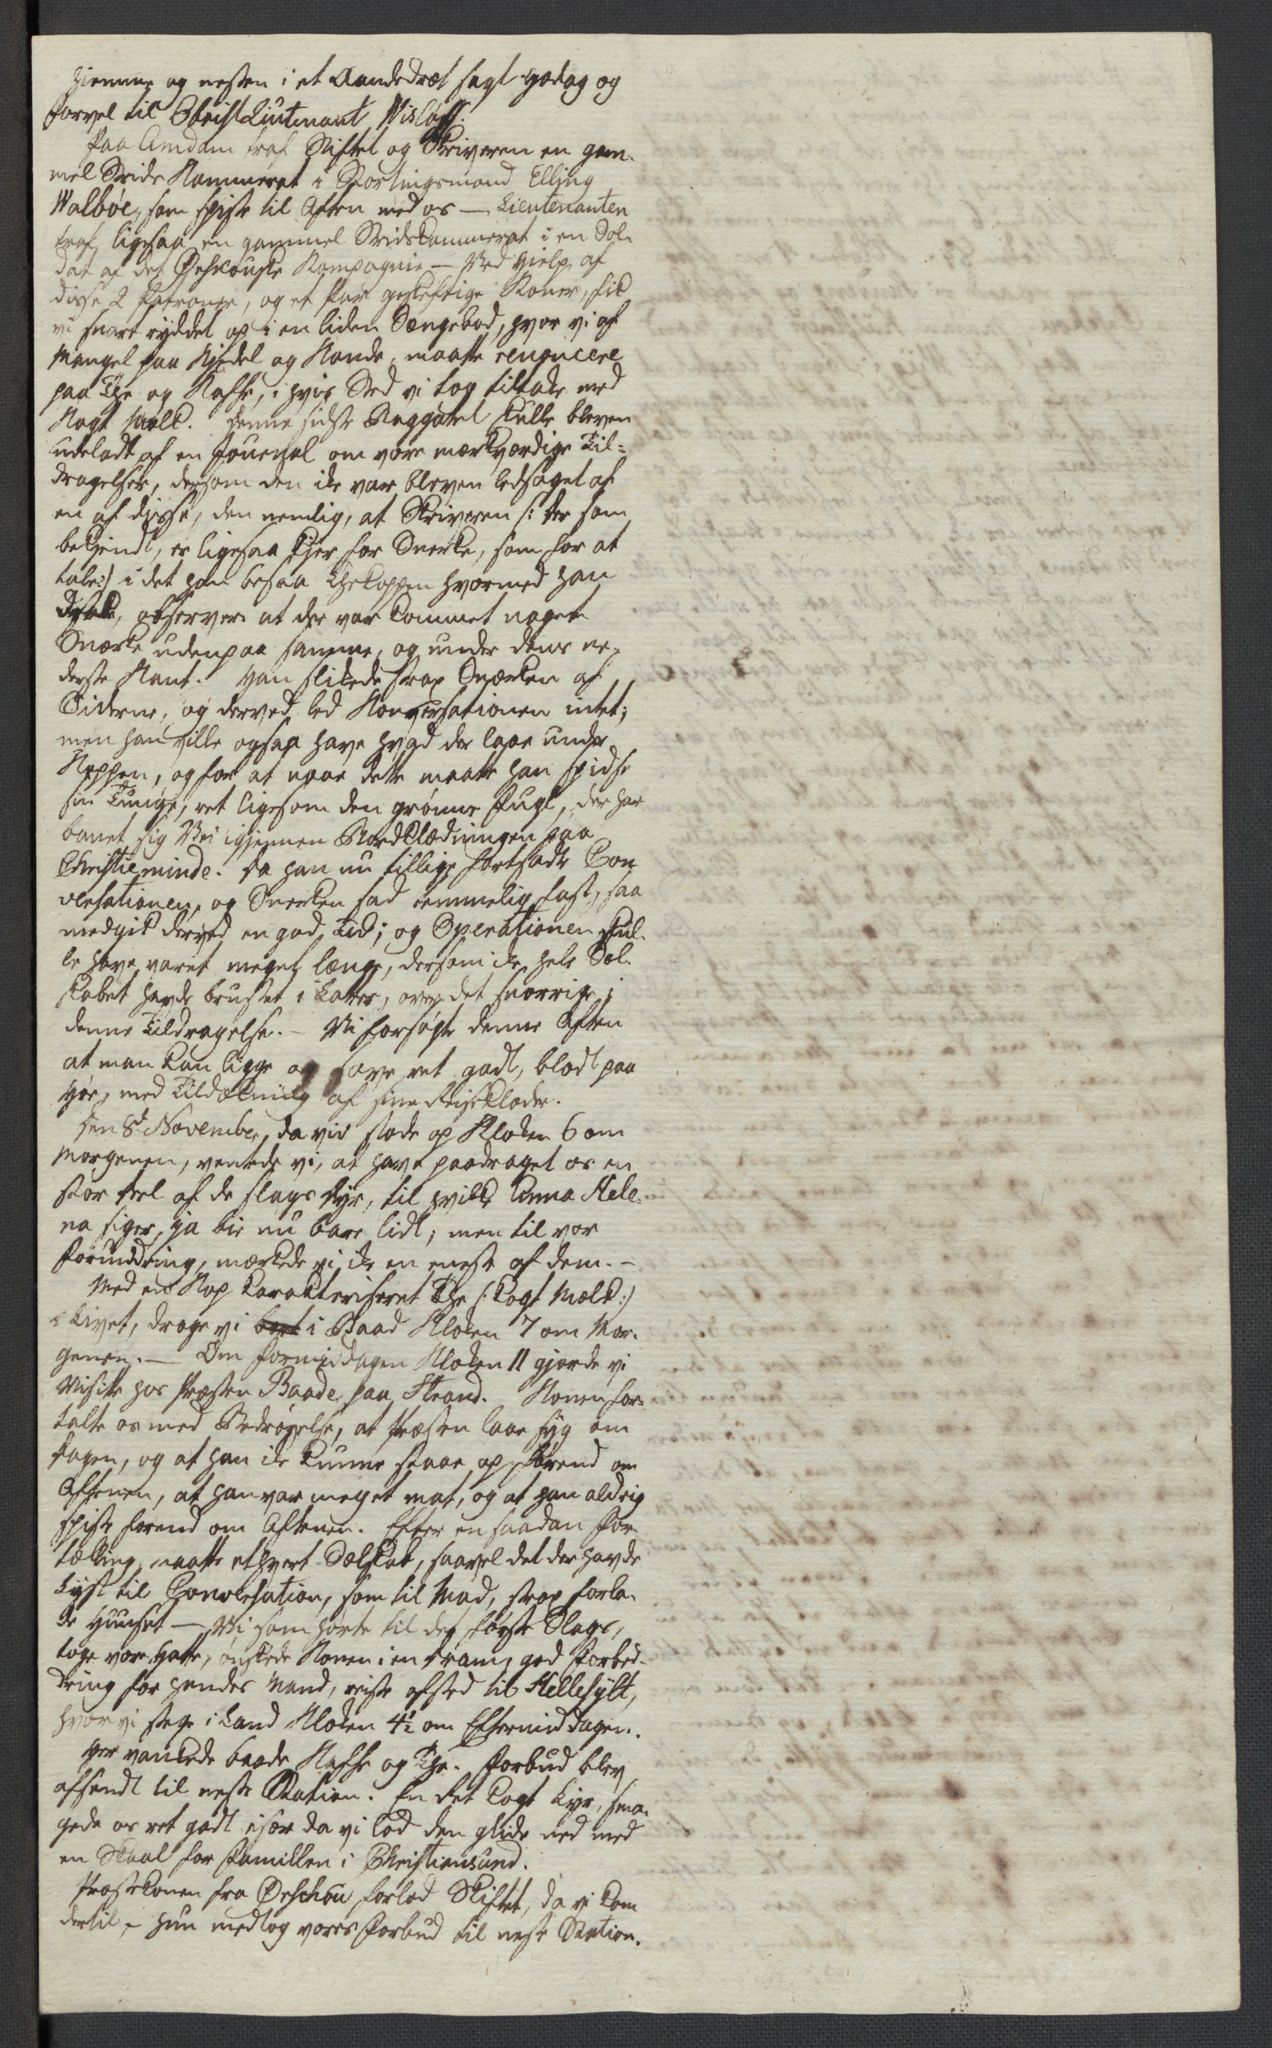 hiemme og nesten i et Aandedræt sagt godag og
farvel til Obristliutmant Wisløff.
Paa Amdam traf Stiftet og Skriveren en gam-
mel Stids Kammerat i Stortingsmand Elling
Walbøe, som spiste til Aften med os — Lieutenanten
traf ligesaa en gammel Stridskammerat i en Sol-
dat af det Ørskougske Kompagnie — Ved Hielp af
disse 2 Patroner, og et Par geskeftige Koner, fik
vi snart ryddet op i en liden Sengebod, hvor vi af
Mangel paa Kiedel og Kande, maatte renuncere
paa The og Kaffe, i hvis Sted vi tog tiltake med
Kogt Melk. Denne sidste Baggatel skulle bleven
udeladt af en Journal om vore mærkværdige Til-
dragelser, dersom den ike var bleven ledsaget af
en af disse, den nemlig, at Skriveren /: der som
bekiendt, er ligesaa kjer for Snerke, som for at
tale :/ i det han besaa Thekoppen hvormed han
drak, observere at der var kommet noget
Snerke udenpaa samme, og under dens ne-
derste Kant. Han slikede strax Snerken af
Siderne, og derved led Konversationen intet;
men han ville ogsaa have hvad der laae under
Koppen, og for at naae dette maatte han spidse
sin Tunge, ret ligesom den grønne Fugl, der har
banet sig Vei igjennem Bordklædningen paa
Christieminde. Da han nu tillige fortsatte Con
versationen, og Snerken sad temmelig fast, saa
medgik derved en god Tid; og Operationen skul-
le have varet meget længe, dersom ike hele Sel-
skabet havde brustet i Latter, over det snorrige i
denne Tildragelse. — Vi forsøgte denne Aften
at man kan ligge og sove ret godt, blødt paa
Høe, med Tildækning af sine Reiseklæder.
Den 8de November, da vi stode op Kloken 6 om
Morgenen, ventede vi, at have paadraget os en
stor Deel af de slags Dyr, til hvilke Anna Hele-
na siger, ja bie nu bare lidt; men til vor
Forundring, mærkede vi ike en eneste af dem. —
Med en Kop karakteriseret The /: kogt Melk :/
i Livet, droge vi bort i Baad Kloken 7 om Mor-
genen. — Om Formiddagen Kloken 11 gjorde vi
Visitte hos Præsten Baade paa Strand. Konen for-
talte os med Bedrøvelse, at Præsten laae syg om
Dagen, og at han ike kunne staae op førend om
Aftenen, at han var meget mat, og at han aldrig
spiste førend om Aftenen. Efter en saadan For-
tælling, maatte ethvert Selskab, saavel det der havde
Lyst til Conversation, som til Mad, strax forla-
de Huuset — Vi som hørte til det første Slags,
toge vor Hatte, ønskede Konen i en Fram, god Forbed-
dring for hendes Mand, reiste afsted til Hellesylt,
hvor vi stege i Land Kloken 4½ om Eftermiddagen.
Her vankede baade Kaffe og The. Forbud blev
afsendt til neste Station. En Fet kogt Lyr, sma-
gede os ret godt især da vi lod den glide ned med
en Skaal for Familien i Christiansund.
Præstekonen fra Ørschou forlod Skiftet, da vi kom
dertil, — hun medtog vores Forbud til neste Station.